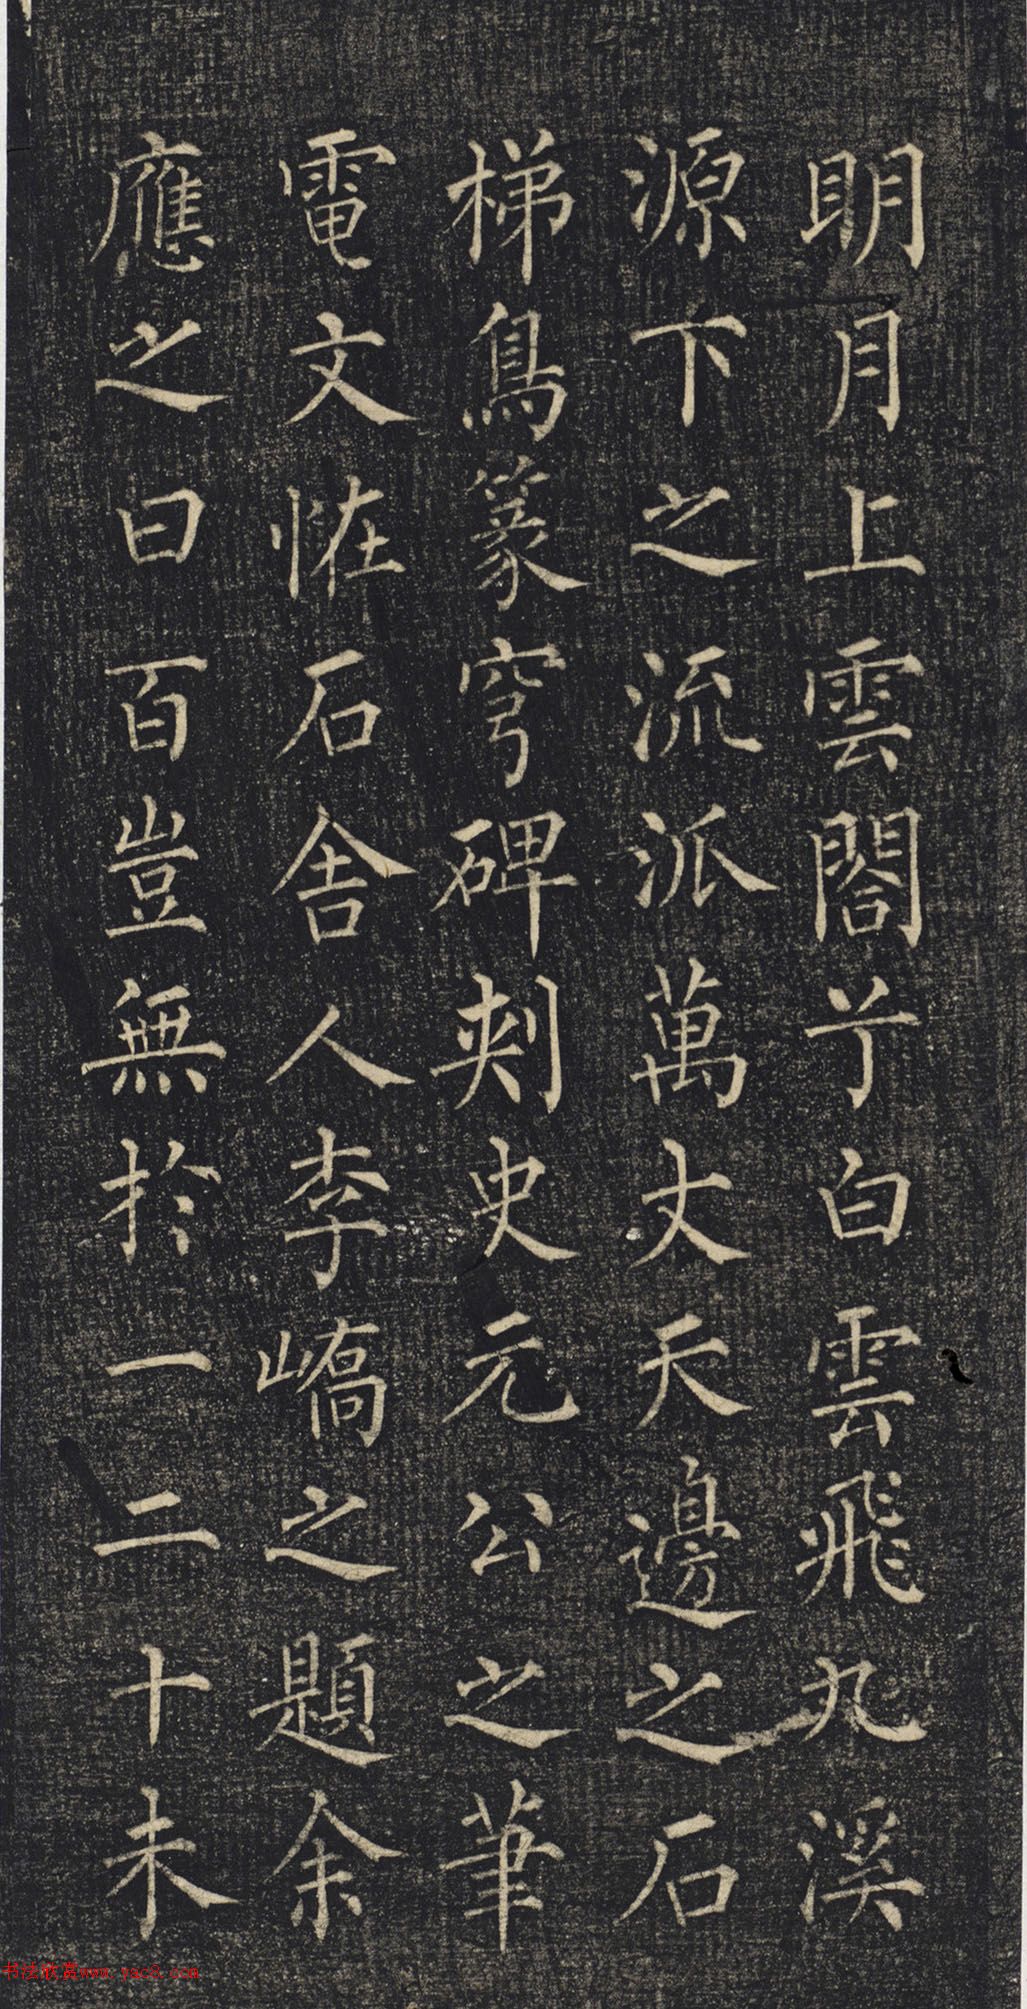 明月上雲閣兮白雲飛九溪
源下之流派萬丈天邊之石
梯鳥篆穹碑刺史元公之筆
電文恠石舍人李嶠之題余
應之曰百豈無於一二十未
书法欣赏www.yac8.com